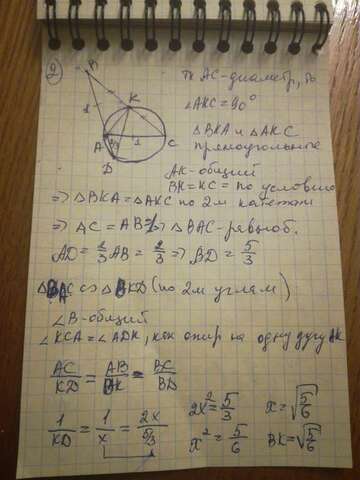 2
B
K
1
A
2/3
1
C
D
тк AC-диаметр, то
∠AKC=90°
△BKA и △AKC
прямоугольные
AK-общий
BK=KC=по условию
⇒ △BKA=△AKC по 2м катетам
⇒ AC=AB=1⇒ △BAC-равноб.
AD=2/3 AB=2/3 ⇒ BD=5/3
△BAC ∽ △BKD (по 2м углам)
∠B-общий
∠KCA=∠ADK, как опир на одну дугу AK
AC/KD = AB/BK = BC/BD
1/KD = 1/x = 2x/(5/3)
2x²=5/3 x=√(5/6)
x²=5/6 BK=√(5/6)